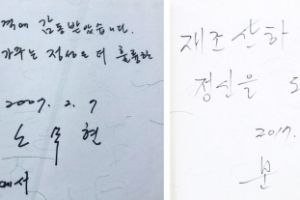 격에 감동받았습니다.
가와는 정상으로 더 훌륭한
2007. 2. 7
노 무 현
에서
재조산하
정신을
2017.
문